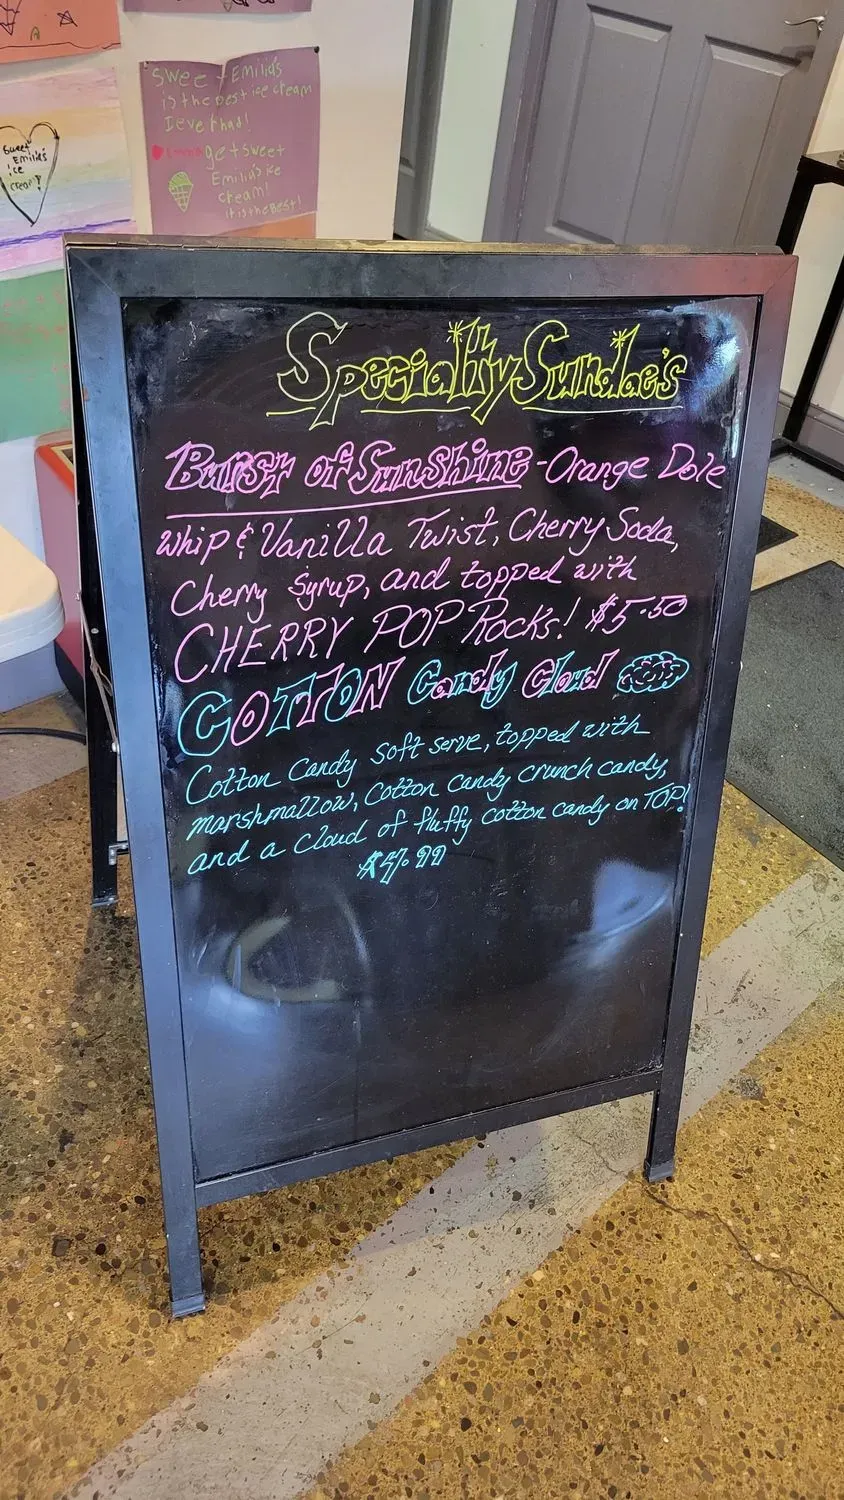 Swee
Emilia's
is the best ice cream
I ever had!
get sweet
Emilia's ice
cream!
it is the Best!
Sweet
Emilia's
ice
cream!
Specialty Sundae's
Burst of Sunshine - Orange Dole
whip & Vanilla Twist, Cherry Soda,
Cherry Syrup, and topped with
CHERRY POP Rocks! $5.50
COTTON Candy Cloud
Cotton Candy soft serve, topped with
marshmallow, cotton candy crunch candy,
and a cloud of fluffy cotton candy on TOP!